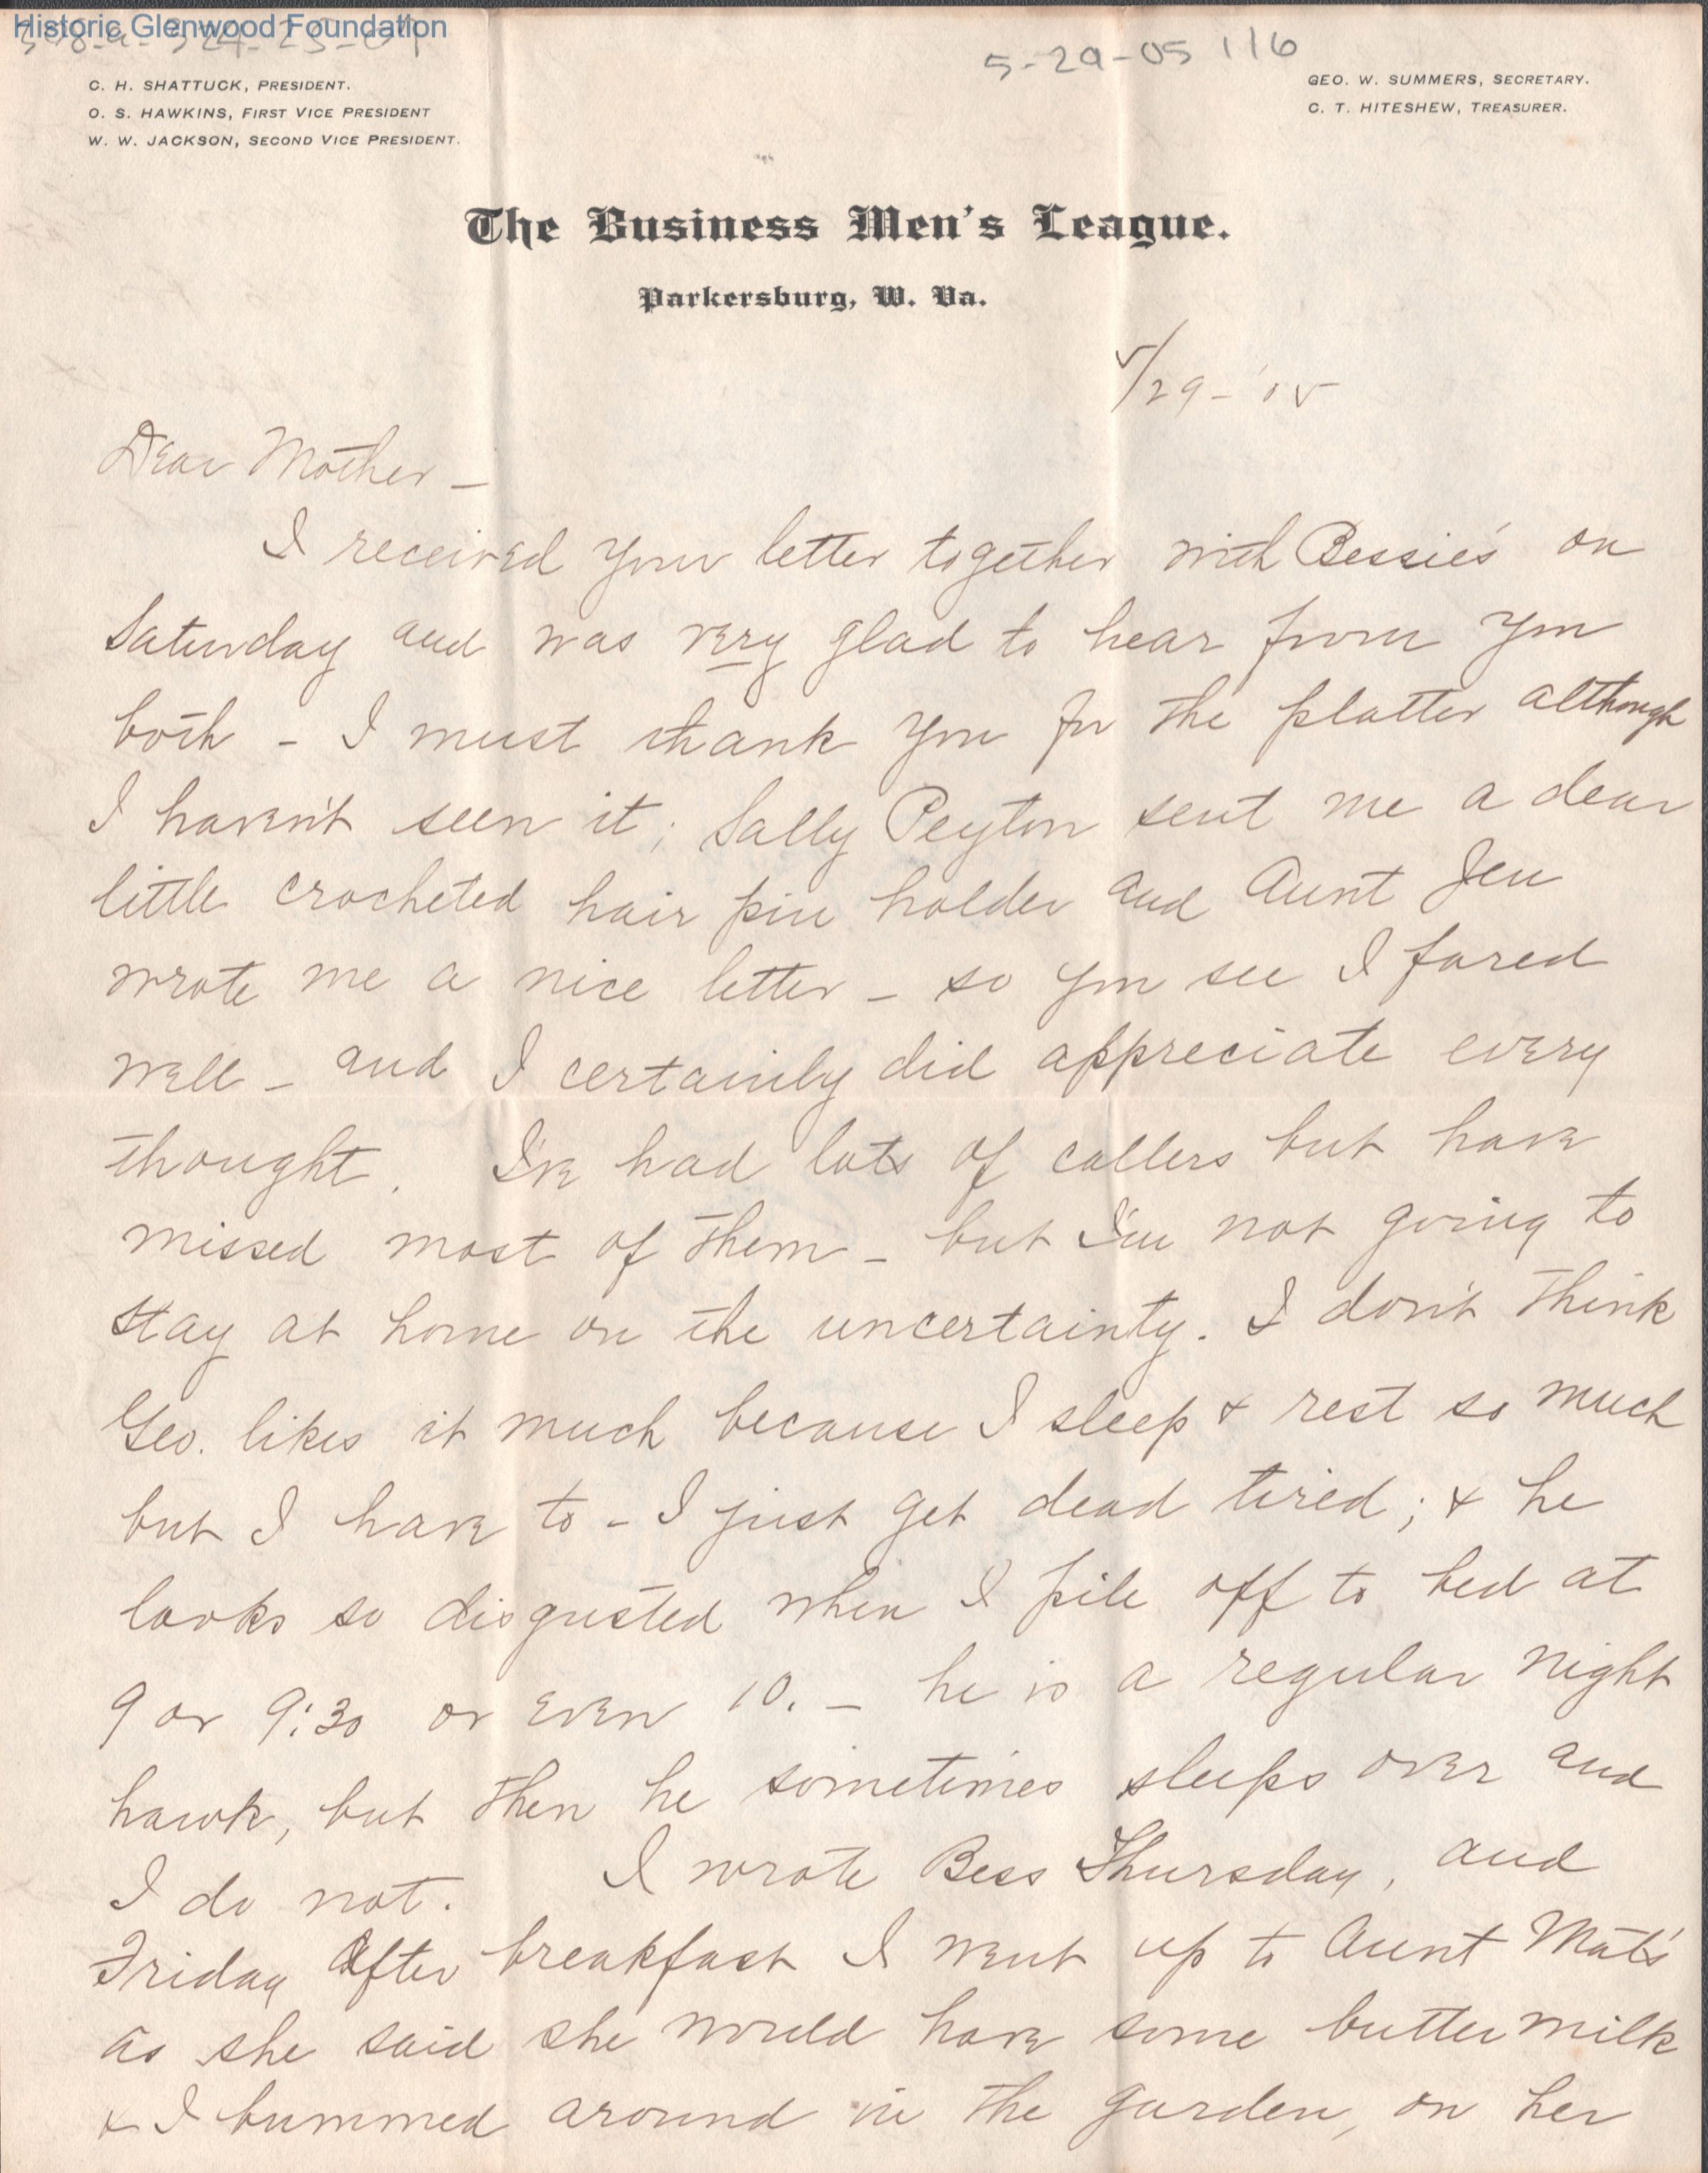 Historic Glenwood Foundation
5-29-05 116
C. H. SHATTUCK, PRESIDENT.
O. S. HAWKINS, FIRST VICE PRESIDENT
W. W. JACKSON, SECOND VICE PRESIDENT.
GEO. W. SUMMERS, SECRETARY.
C. T. HITESHEW, TREASURER.
The Business Men's League.
Parkersburg, W. Va.
5/29-'05
Dear Mother –
I received your letter together with Bessie's on
Saturday and was very glad to hear from you
both – I must thank you for the platter although
I haven't seen it; Sally Peyton sent me a dear
little crocheted hair pin holder and Aunt Jen
wrote me a nice letter – so you see I fared
well – and I certainly did appreciate every
thought. I've had lots of callers but have
missed most of them – but I'm not going to
stay at home on the uncertainty. I don't think
Geo. likes it much because I sleep & rest so much
but I have to – I just get dead tired; & he
looks so disgusted when I pile off to bed at
9 or 9:30 or even 10. – he is a regular night
hawk, but then he sometimes sleeps over and
I do not. I wrote Bess Thursday, and
Friday After breakfast I went up to Aunt Mat's
as she said she would have some butter milk
& I bummed around in the garden, on her